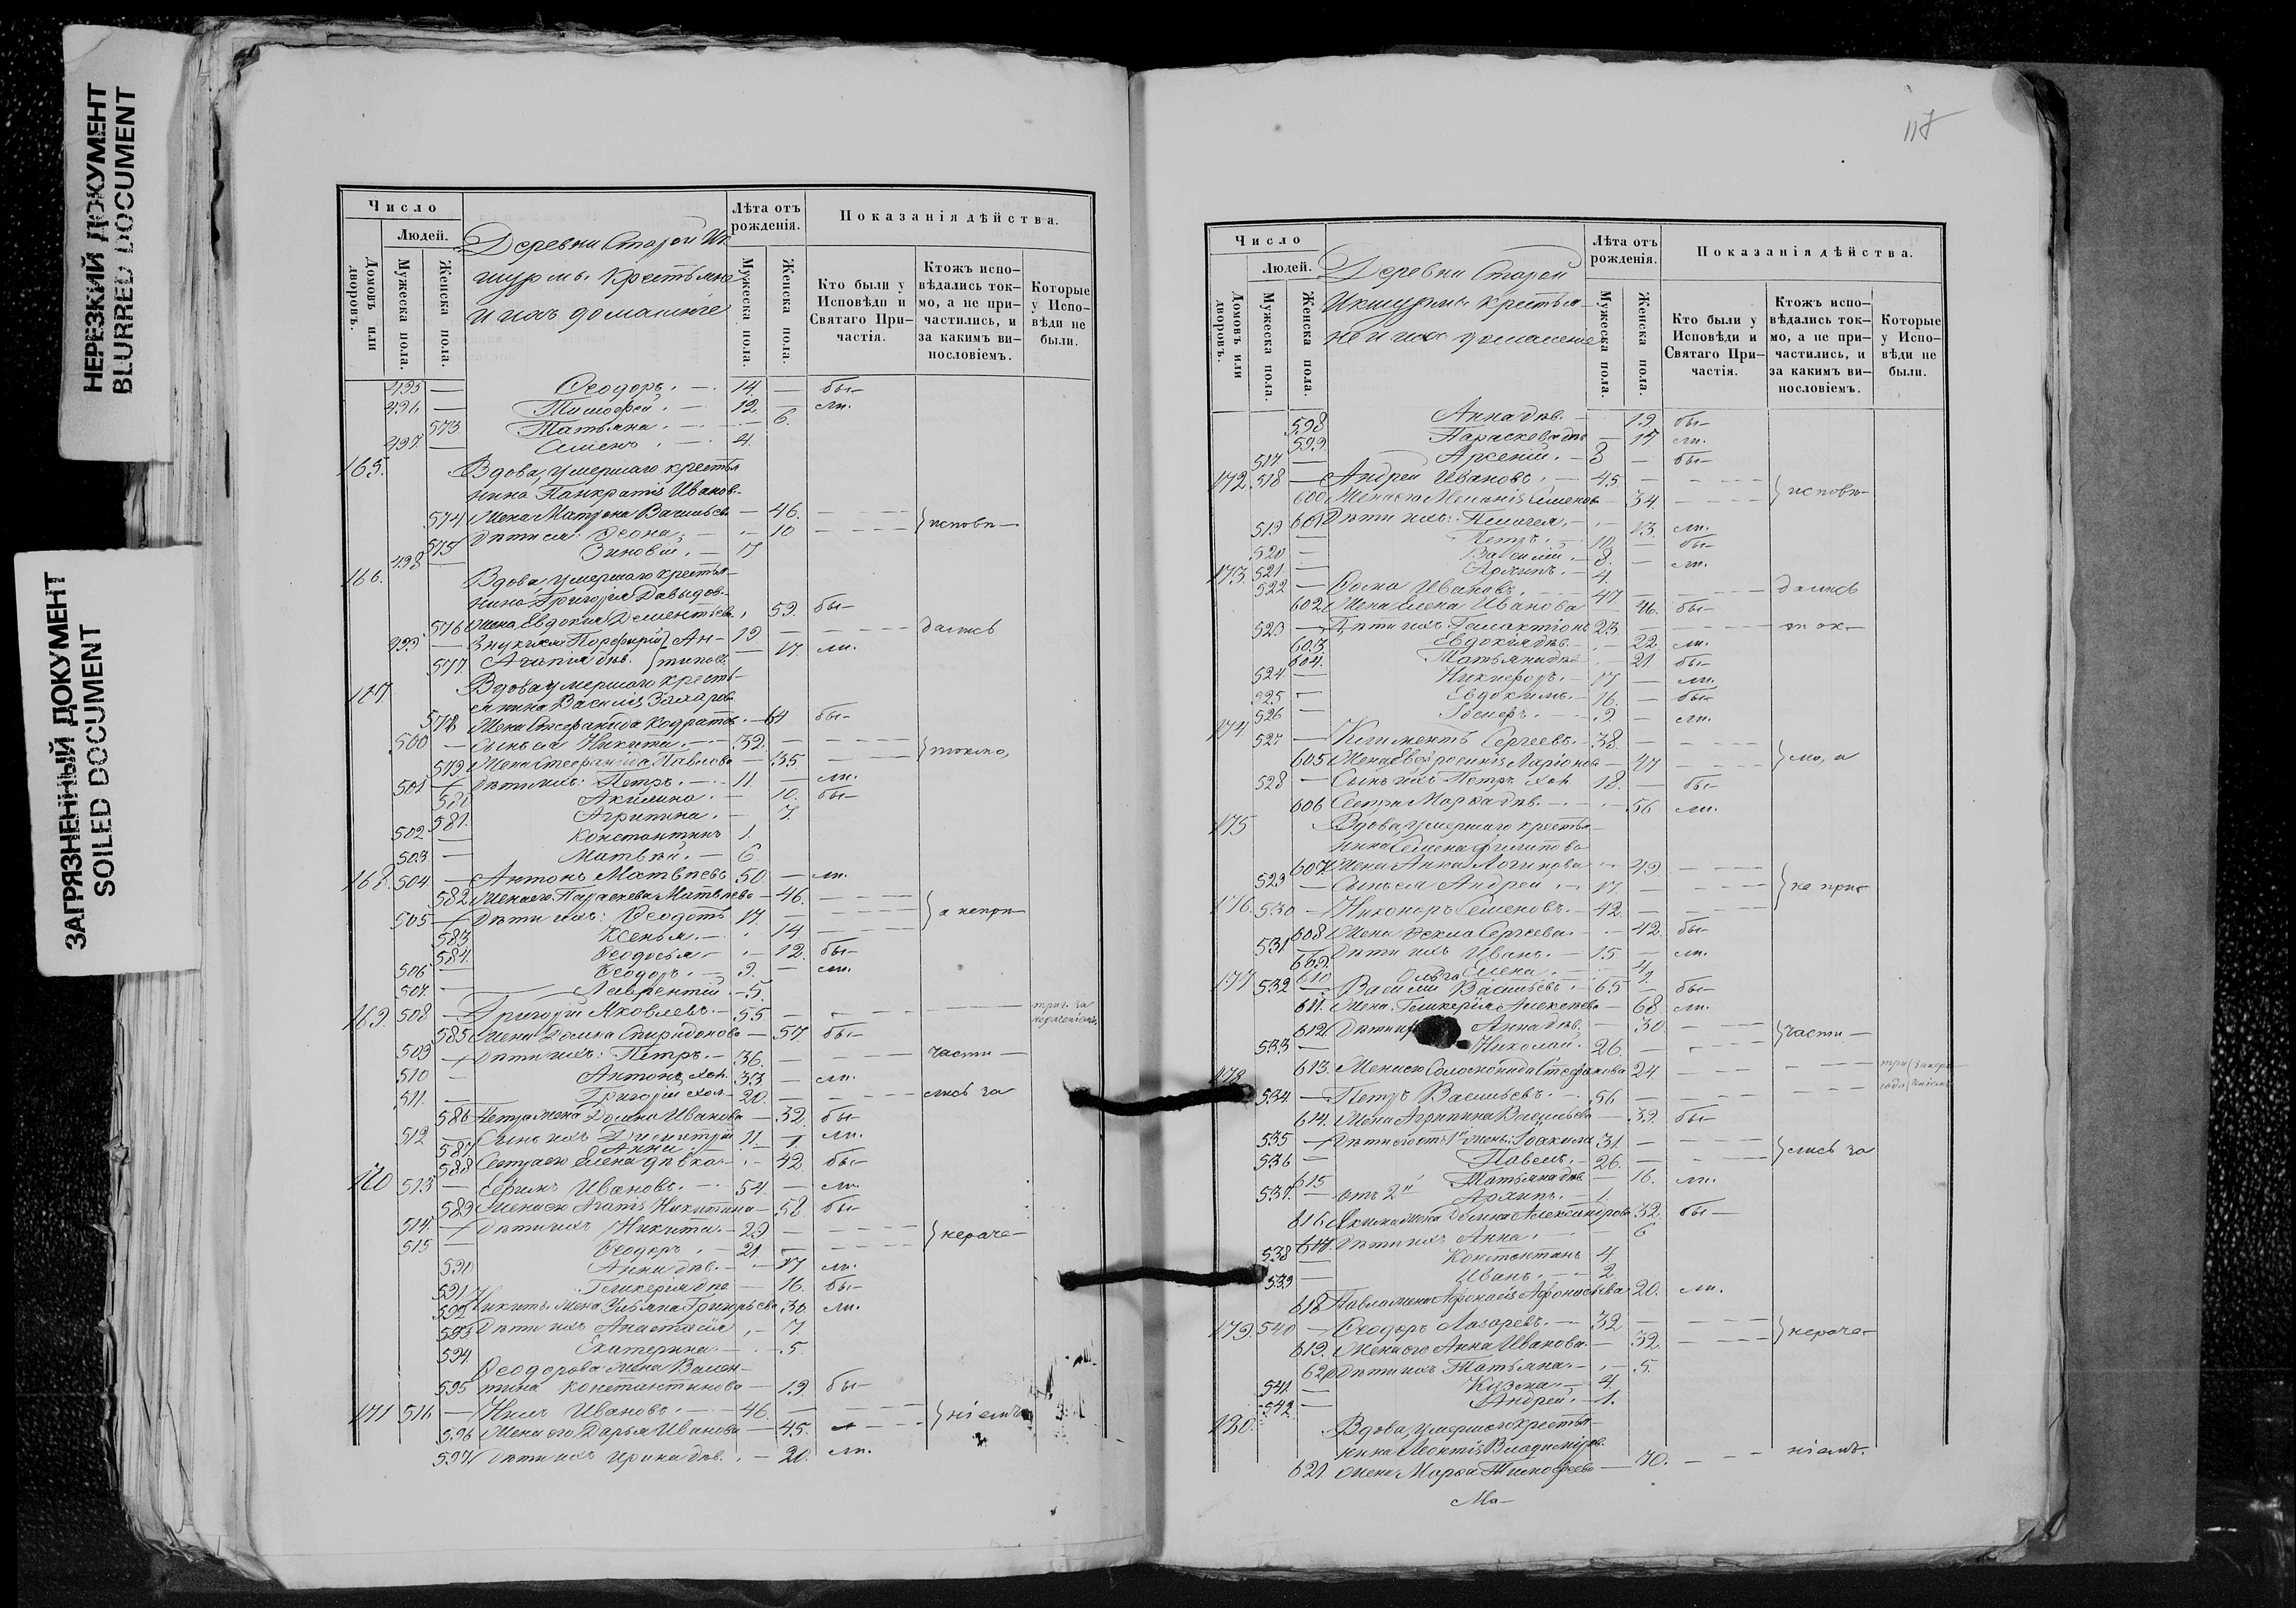 НЕРЕЗКИЙ ДОКУМЕНТ
BLURRED DOCUMENT
ЗАГРЯЗНЕННЫЙ ДОКУМЕНТ
SOILED DOCUMENT
Число
Людей.
Домовъ или дворовъ.
Мужеска пола.
Женска пола.
Деревни Старой Ик
шурмы крестьяне
и ихъ домашніе
Лѣта отъ рожденія.
Мужеска пола.
Женска пола.
Показанія дѣйства.
Кто были у Исповѣди и Святаго Причастія.
Ктожъ исповѣдались токмо, а не причастились, и за какимъ винословіемъ.
Которые у Исповѣди не были.
495 — Ѳеодоръ. — 14. — бы–
496 — Тимофей. — 12. — ли.
573 Татьяна. — 6.
497. — Семенъ. — 4.
165. Вдова, умершаго крестья
нина Панкратія Иванов–
574 Жена Матрона Васильева — 46. — исповѣ–
575 Дѣти ея: — 10
498 — Зиновій. — 17.
166. Вдова, умершаго крестья–
нина Григорія Давыдов–
576 Жена, Евдокія Дементьева. 59. бы–
499 — Внуки ея Порфирій Ан– 19 — дались
577 дѣв. типов. — 17. ли.
167. Вдова умершаго кресть–
янина Василія Захаров
578 Жена Стефанида Кодратов. — 64 бы–
500 — Сынъ ея Никита. — 32. — токмо,
579 Жена Стефанида Павлова — 35
501 — Дѣти ихъ: Петръ. — 11. — ли.
580 Акилина. — 10. бы–
581. Агрипина. — 7.
502 — Константинъ 1.
503 — Матвѣй. — 6.
168. 504 — Антонъ Матвѣевъ 50. — ли.
582 Жена его Параскева Матвѣева — 46. — а непри–
505 — Дѣти ихъ: Ѳеодотъ 17. —
583 Ксенья. — 14. —
584. Ѳеодосья. — 12. бы–
506 — Ѳеодоръ. — 9. — ли.
507. — Лаврентій. — 5.
169. 508 — Григорій Яковлевъ. — 55 — за
585 Жена Домна Спиридонова — 57. бы–
509 — Дѣти ихъ: Петръ. — 36. — части–
510 — Антонъ, хол. 33 — ли.
511. — Григорій хол. — 20. — лись за
586 Петра Жена Домна Иванова — 32. бы–
512 — Сынъ ихъ Димитрій 11. — ли.
587. Анна. — 1
588 Сестра его Елена дѣвка. — 42. бы–
170 513 — Ефимъ Ивановъ. — 54. — ли.
589 Жена его Агаѳія Никитина — 58. бы–
514. — Дѣти ихъ Никита. — 29 — нераче–
515 — Ѳеодоръ. — 21. —
590 Анна дѣв. — 17 ли.
591 Гликерія дѣв — 16. бы–
592 Никиты Жена Ульяна Григорьева 30 ли.
593 Дѣти ихъ Анастасія — 7.
594 Екатерина — 5.
Ѳеодорова Жена Вален–
595 тина Константинова — 19. бы–
171 516 — Нилъ Ивановъ. — 46. — ніемъ
596 Жена его Дарья Иванова — 45.
597. Дѣти ихъ Ирина дѣв. — 20. ли.
117
Число
Людей.
Домовъ или дворовъ.
Мужеска пола.
Женска пола.
Деревни Старой
Икшурмы крестья–
не и ихъ домашніе
Лѣта отъ рожденія.
Мужеска пола.
Женска пола.
Показанія дѣйства.
Кто были у Исповѣди и Святаго Причастія.
Ктожъ исповѣдались токмо, а не причастились, и за какимъ винословіемъ.
Которые у Исповѣди не были.
598 Анна дѣв. — 19. бы–
599 Параскева дѣв — 17 ли.
517 — Арсеній. — 8 — бы–
172. 518 — Андрей Ивановъ. — 45 — исповѣ–
600 Жена его Меланія Семенова 34. —
601 Дѣти ихъ: — 13. ли.
519 — Петръ. — 10. — бы–
520 — Василій. — 8. — ли.
521. — Архипъ. — 4.
173. 522 — Ѳома Ивановъ. — 47 — дались
602 Жена Елена Иванова — 46. бы–
523 — Дѣти ихъ Галактіонъ 23. — ток–
603 Евдокія дѣв. — 22. ли.
604. Татьяна дѣв — 21. бы–
524. — Никифоръ. — 17 — ли.
525. — Евдокимъ. — 16. — бы–
526 — — 9. — ли.
174 527 — Климентъ Сергеевъ. — 38. — мо, а
605 Жена, Евфросинія Ларіонова — 47 —
528 — Сынъ ихъ Петръ хол. 18. — бы–
606 Сестра Марѳа дѣв. — 56 ли.
175 Вдова, умершаго крестья–
нина Семена Филипова
607 Жена Анна Логинова — 49. —
529 — Сынъ ея Андрей. — 17. — не при–
176. 530 — Никоноръ Семеновъ. — 42. —
608 Жена Ѳекла Сергеева. — 42. бы–
531. — Дѣти ихъ Иванъ. — 15 — ли.
609. Елена. — 4.
610 Ольга 1.
177 532 — Василій Васильевъ. — 65 — бы–
611. Жена Гликерія Алексѣева — 68. ли.
612. Дѣти Анна дѣв. — 30. — части–
533 — Николай. 26. —
613. Жена его Соломонида Стефанова 24. —
178. 534 — Петръ Васильевъ. — 56 —
614. Жена Агрипина Васильева — 39. бы–
535 — Дѣти его отъ 1й жены: Іоакимъ 31. — лись за
536 — Павелъ. — 26. —
615 Татьяна дѣв. — 16. ли.
537. — отъ 2й Архипъ. — 1.
616 Якима Жена Домна Александрова 32. бы–
617. Дѣти ихъ Анна. — 6
538 — Константинъ 4
539 — Иванъ. — 2.
618 Павла Жена Афанасія Афонасьева 20. ли.
179 540 — Ѳеодоръ Лазаревъ. — 32 — нераче–
619. Жена его Анна Иванова. — 32 —
620 Дѣти ихъ Татьяна. — 5.
541. — Кузма. — 4.
542 — Андрей, — 1.
180. Вдова, умершаго крестья–
нина Леонтія Владимиров.
621 Жена Марѳа Тимофеева — 70. — ніемъ.
Ма–